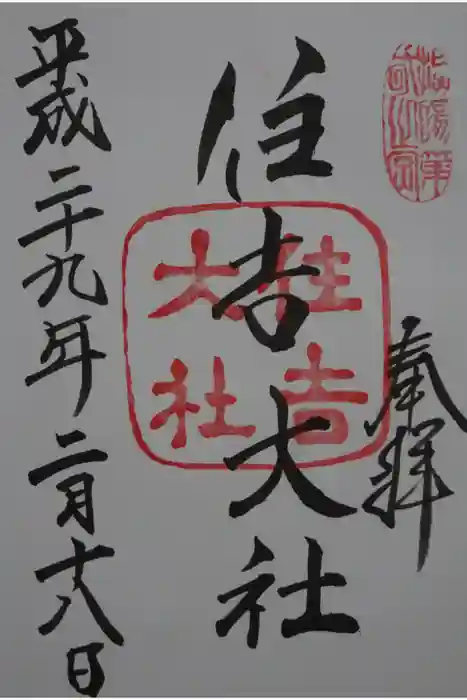 奉拝
住吉大社
住吉大社
平成二十九年二月十八日